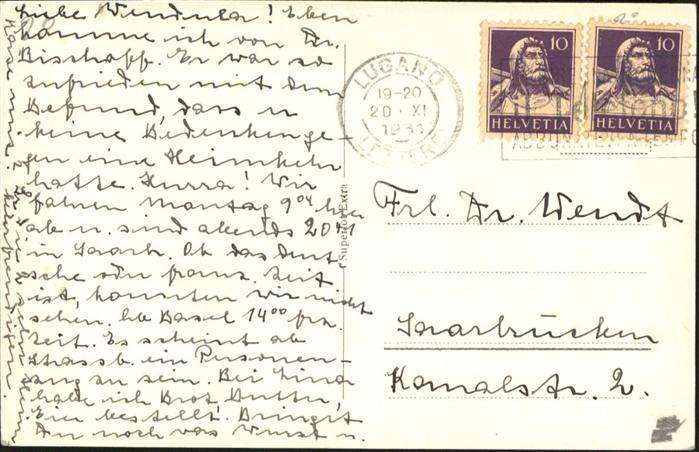 Liebe Wendula! Eben
komme ich von Dr.
Bischoff. Er war so
zufrieden mit dem
Befund, dass er
keine Bedenken ge-
gen eine Heimkehr
hatte. Hurra! Wir
fahren Montag 9⁰⁴ hier
ab u. sind abends 20⁴¹
in Saarb. Ob das deut-
sche oder franz. Zeit
ist, konnten wir nicht
sehen. ab Basel 14⁰⁰ frz.
Zeit. Es scheint ab
Strassb. ein Personen-
zug zu sein. Bei
habe ich Brot, Butter,
Eier bestellt. Bringst
Du noch was Wurst u.
Käse mit?
LUGANO
19-20
20·XI
1931
LETTERE
10
HELVETIA
10
HELVETIA
Superior Extra
Frl. Dr. Wendt
Saarbrücken
Kanalstr. 2.